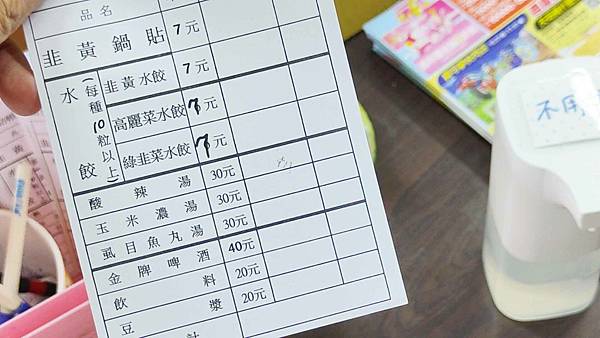 品名
韭黃鍋貼 7元
水餃(每種10粒以上)
韭黃水餃 7元
高麗菜水餃 7元
綠韭菜水餃 7元
酸辣湯 30元
玉米濃湯 30元
虱目魚丸湯 30元
金牌啤酒 40元
飲料 20元
豆漿 20元
計
不用